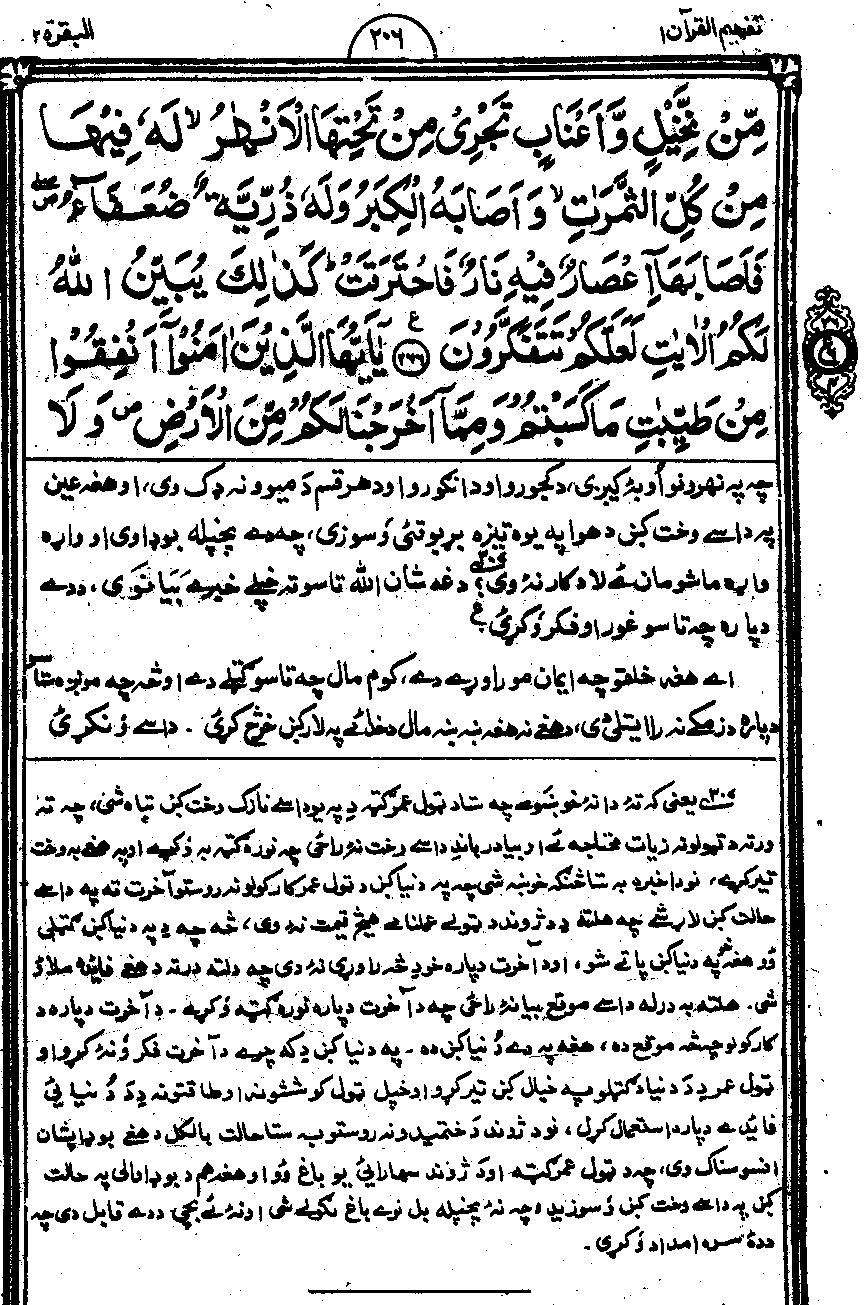 تفهيم القرآن ١
٢٠٦
البقرة ٢
مِّنْ نَّخِيْلٍ وَّاَعْنَابٍ تَجْرِىْ مِنْ تَحْتِهَا الْاَنْهٰرُ ۙ لَهٗ فِيْهَا
مِنْ كُلِّ الثَّمَرٰتِ ۙ وَاَصَابَهُ الْكِبَرُ وَلَهٗ ذُرِّيَّةٌ ضُعَفَآءُ ۖ
فَاَصَابَهَاۤ اِعْصَارٌ فِيْهِ نَارٌ فَاحْتَرَقَتْ ؕ كَذٰلِكَ يُبَيِّنُ اللّٰهُ
لَكُمُ الْاٰيٰتِ لَعَلَّكُمْ تَتَفَكَّرُوْنَ ﴿٢٦٦﴾ ع يٰۤاَيُّهَا الَّذِيْنَ اٰمَنُوْۤا اَنْفِقُوْا
مِنْ طَيِّبٰتِ مَا كَسَبْتُمْ وَمِمَّاۤ اَخْرَجْنَا لَكُمْ مِّنَ الْاَرْضِ ۖ وَلَا
چه په نهرونو اوبۀ كيږى، د كجورو او د انګورو او د هر قسم دَ ميوو نه ډک وى، او هغه عين
په داسے وخت كښ د هوا په يوه تيزه بړبوكئ وَسوزى، چه دے پخپله بوډا وى او واړه
واړه ماشومان ئے لا د كار نۀ وى؟ دغه شان الله تاسو ته خپلے خبرے بيانوى، د دے
دپاره چه تاسو غور او فكر وَكړئ
اے هغه خلقو چه ايمان مو راوړے دے، كوم مال چه تاسو ګټلے دے او څه چه مونږه ستاسو
دپاره د زمكے نه را ايستلى دى، د هغے نه هغه ښه ښه مال د خدائے په لار كښ خرڅ كړئ. داسے وُ نكړئ
يعنى كه تۀ دا نۀ خوښوے چه ستا د ټول عمر ګټه دِ په يو داسے نازک وخت كښ تباه شى، چه تۀ
ورته د ټولو نه زيات محتاجه ئے او بيا درباندِ داسے وخت نۀ راځى چه نوره ګټه به وُكړے او په هغے به وخت
تيركړے، نو دا خبره به ستا څنګه خوښه شى چه په دنيا كښ د ټول عمر كار كولو نه روستو آخرت ته په داسے
حالت كښ لاړ شے چه هلته دِ د ژوند د ټولے عملنامے هيڅ قيمت نۀ وى، څه چه دِ په دنيا كښ ګټلى
وُو هغه په دنيا كښ پاتے شو، او د آخرت دپاره خو دِ څه راوړى نۀ دى چه دلته درته د هغے فائده ملاؤ
شى. هلته به درله داسے موقع بيا نۀ راځى چه د آخرت دپاره نوره ګټه وُكړے. دِ آخرت دپاره د
كار كولو چه څه موقع ده، هغه په دے دُنيا كښ ده. په دنيا كښ دِ كه چرے د آخرت فكر وُنۀ كړو او
ټول عمر دِ دَ دنيا د ګټلو په خيال كښ تير كړو او خپل ټول كوششونه او طاقتونه دِ دَ دُنيايئ
فائدے دپاره استعمال كړل، نو د ژوند دَ ختميدو نه روستو به ستا حالت بالكل د هغے بوډا په شان
افسوسناک وى، چه د ټول عمر ګټه او دَ ژوند سهارا ئې يو باغ وُو او هغه هم د بوډا والى په حالت
كښ په داسے وخت كښ وُسوزيد، چه نۀ پخپله بل نوے باغ لګولے شى او نۀ ئے بچى د دے قابل دى چه
ددۀ سره امداد وُكړى.